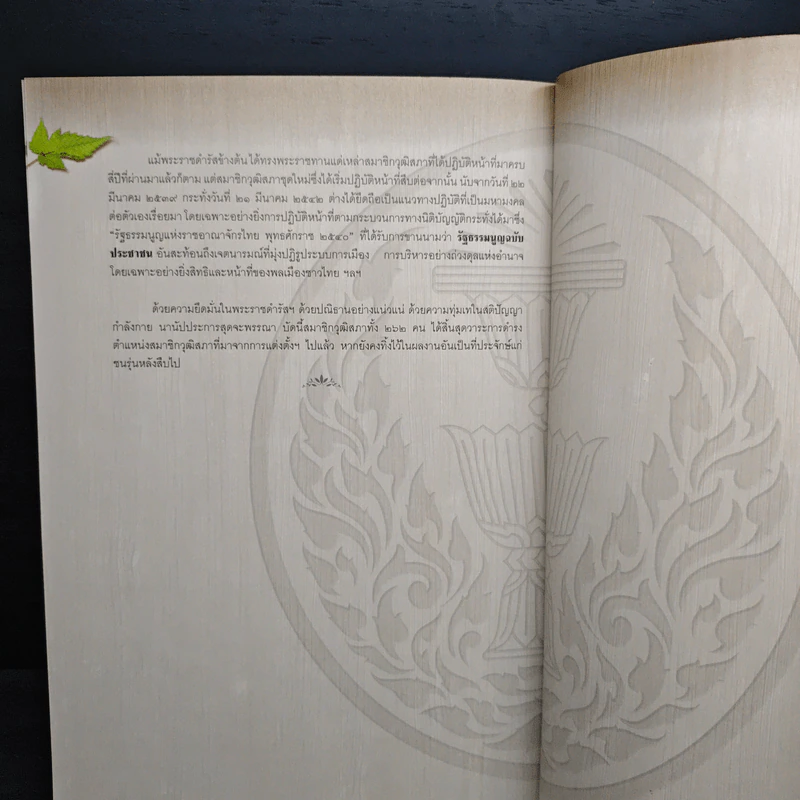 แม้พระราชดำรัสข้างต้น ได้ทรงพระราชทานแด่เหล่าสมาชิกวุฒิสภาที่ได้ปฏิบัติหน้าที่มาครบ
สี่ปีที่ผ่านมาแล้วก็ตาม แต่สมาชิกวุฒิสภาชุดใหม่ซึ่งได้เริ่มปฏิบัติหน้าที่สืบต่อจากนั้น นับจากวันที่ ๒๒
มีนาคม ๒๕๓๙ กระทั่งวันที่ ๒๑ มีนาคม ๒๕๔๒ ต่างได้ยึดถือเป็นแนวทางปฏิบัติที่เป็นมหามงคล
ต่อตัวเองเรื่อยมา โดยเฉพาะอย่างยิ่งการปฏิบัติหน้าที่ตามกระบวนการทางนิติบัญญัติกระทั่งได้มาซึ่ง
"รัฐธรรมนูญแห่งราชอาณาจักรไทย พุทธศักราช ๒๕๔๐" ที่ได้รับการขานนามว่า รัฐธรรมนูญฉบับ
ประชาชน อันสะท้อนถึงเจตนารมณ์ที่มุ่งปฏิรูประบบการเมือง การบริหารอย่างถ่วงดุลแห่งอำนาจ
โดยเฉพาะอย่างยิ่งสิทธิและหน้าที่ของพลเมืองชาวไทย ฯลฯ
ด้วยความยึดมั่นในพระราชดำรัสฯ ด้วยปณิธานอย่างแน่วแน่ ด้วยความทุ่มเทในสติปัญญา
กำลังกาย นานัปประการสุดจะพรรณา บัดนี้สมาชิกวุฒิสภาทั้ง ๒๖๒ คน ได้สิ้นสุดวาระการดำรง
ตำแหน่งสมาชิกวุฒิสภาที่มาจากการแต่งตั้งฯ ไปแล้ว หากยังคงทิ้งไว้ในผลงานอันเป็นที่ประจักษ์แก่
ชนรุ่นหลังสืบไป